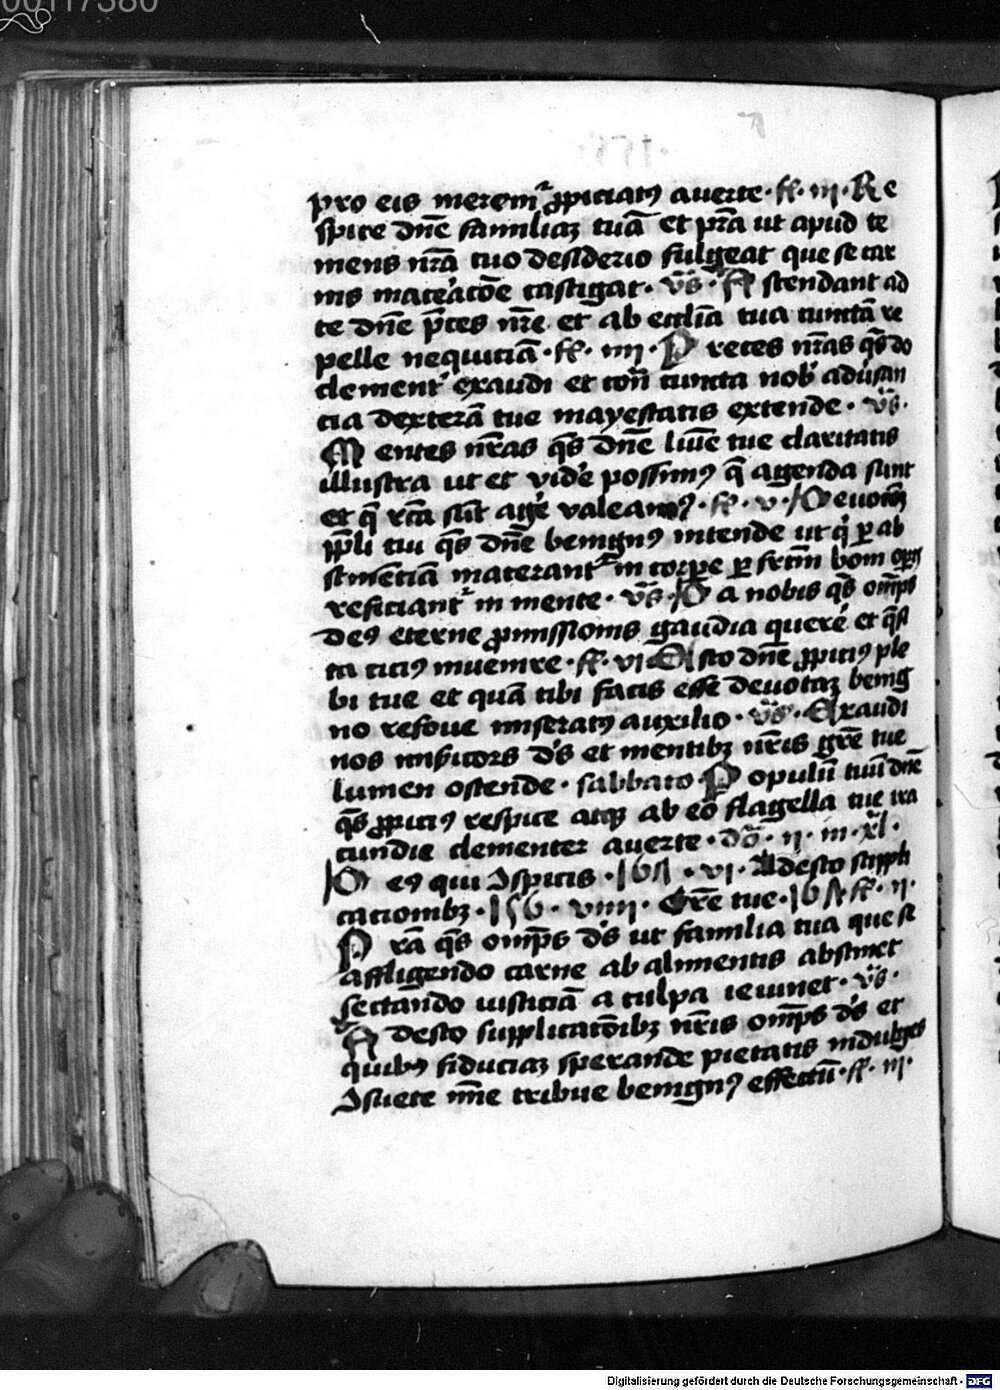 00117380
pro eis meremr̄ ꝓpiciatꝰ auerte · ff · iij · Re
spice dn̄e familiaꝫ tuā et p̄ra ut apud te
mens nr̄a tuo desiderio fulgeat que se car
nis maceracōe castigat · v̄s · Astendant ad
te dn̄e p̄ces nr̄e et ab eccl̄ia tua cunctā re
pelle nequiciā · ff · iiij · Preces nr̄as q̄s do
clementʳ exaudi et con̄ cuncta nob̓ aduͣsan
cia dexterā tue mayestatis extende · v̄s ·
Mentes nr̄as q̄s dn̄e lum̄e tue claritatis
illustra ut et vide̓ possimꝰ q̄ agenda sunt
et q̄ rc̄a sūt age̓ valeamꝰ · ff · v · Deuocōꝫ
pp̄li tui q̄s dn̄e benignꝰ intende ut q̓ ꝑ ab
stinēciā macerantʳ in corpe ꝑ frc̄m boni opis
reficiantʳ in mente · v̄s · Da nobis q̄s om̄ps
deꝰ eterne ꝓmissionis gaudia quere̓ et q̄si
ta ciciꝰ inuenire · ff · vi Esto dn̄e ꝓpiciꝰ ple
bi tue et quā tibi facis esse deuotaꝫ benig
no refoue miseratꝰ auxilio · v̄s · Exaudi
nos mīsicors ds̄ et mentibꝫ nr̄is gr̄e tue
lumen ostende · sabbato Populū tuū dn̄e
q̄s ꝓpiciꝰ respice atqꝫ ab eo flagella tue ira
cundie clementer auerte · dō · ij · in · xl ·
Deꝰ qui ɔspicis · 161 · vi · Adesto suppli
cacionibꝫ · 156 · viiii · Gr̄e tue · 165 ff · ij ·
Pr̄a q̄s om̄ps ds̄ ut familia tua que se
affligendo carne ab alimentis abstinet
sectando iusticiā a culpa ieiunet · v̄s ·
Adesto supplicacōibꝫ nr̄is om̄ps ds̄ et
quibꝰ fiduciaꝫ sperande pietatis indulges
ɔsuete mīe tribue benignꝰ effectū · ff · iij ·
Digitalisierung gefördert durch die Deutsche Forschungsgemeinschaft - DFG